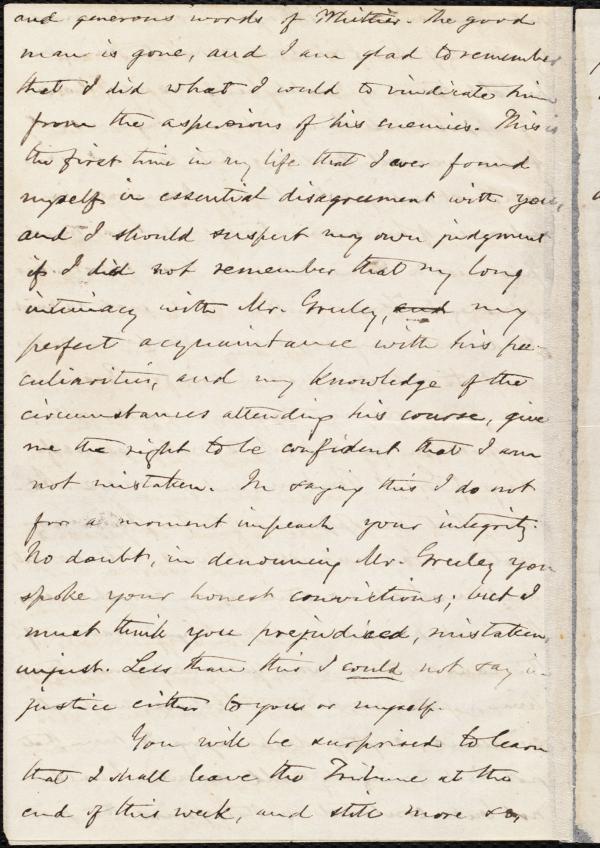 and generous words of Whittier. The good
man is gone, and I am glad to remember
that I did what I could to vindicate him
from the aspersions of his enemies. This is
the first time in my life that I ever found
myself in essential disagreement with you,
and I should suspect my own judgment
if I did not remember that my long
intimacy with Mr. Greeley, and my
perfect acquaintance with his pe-
culiarities, and my knowledge of the
circumstances attending his course, give
me the right to be confident that I am
not mistaken. In saying this I do not
for a moment impeach your integrity.
No doubt, in denouncing Mr. Greeley you
spoke your honest convictions; but I
must think you prejudiced, mistaken,
unjust. Less than this I could not say in
justice either to you or myself.
You will be surprised to learn
that I shall leave the Tribune at the
end of this week, and still more so,